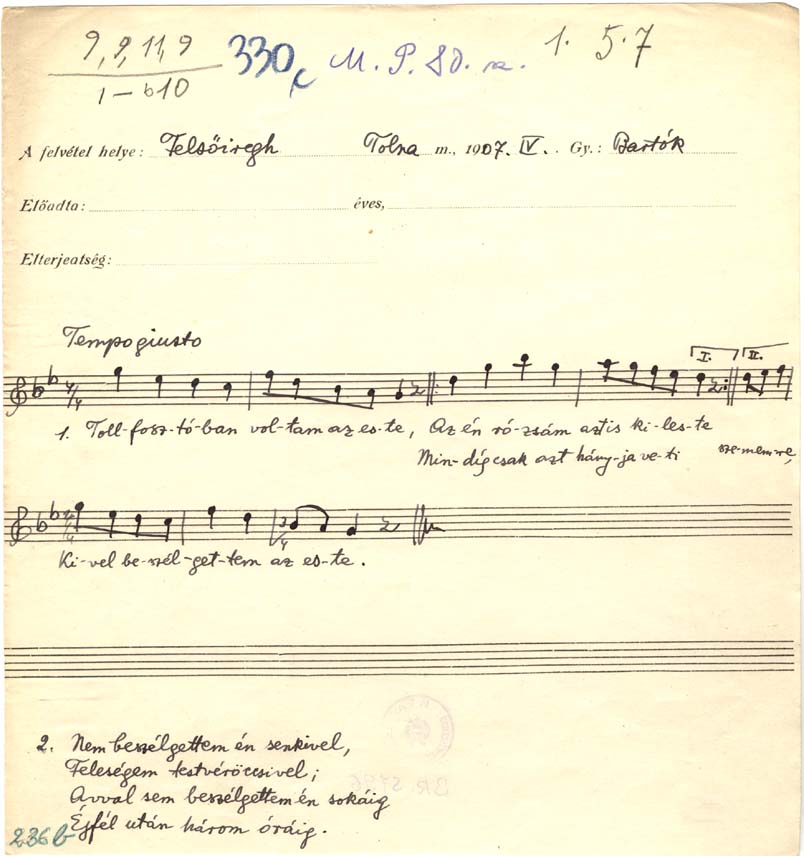 9, 9, 11, 9 330 M. P. 80. sz. 1. 5. 7
1 – b10
A felvétel helye: Felsőiregh Tolna m., 1907. IV. Gy.: Bartók
Előadta: éves,
Elterjeatség:
Tempo giusto
I. II.
4/4
1. Toll-fosz-tó-ban vol-tam az es-te, Az én ró-zsám azt is ki-les-te
Min-dig csak azt hány-ja ve-ti sze-mem-re,
3/4
Ki-vel be-szél-get-tem az es-te.
2. Nem beszélgettem én senkivel,
Feleségem testvéröccsivel;
Avval sem beszélgettem én sokáig
Éjfél után három óráig.
236b
BR 5796